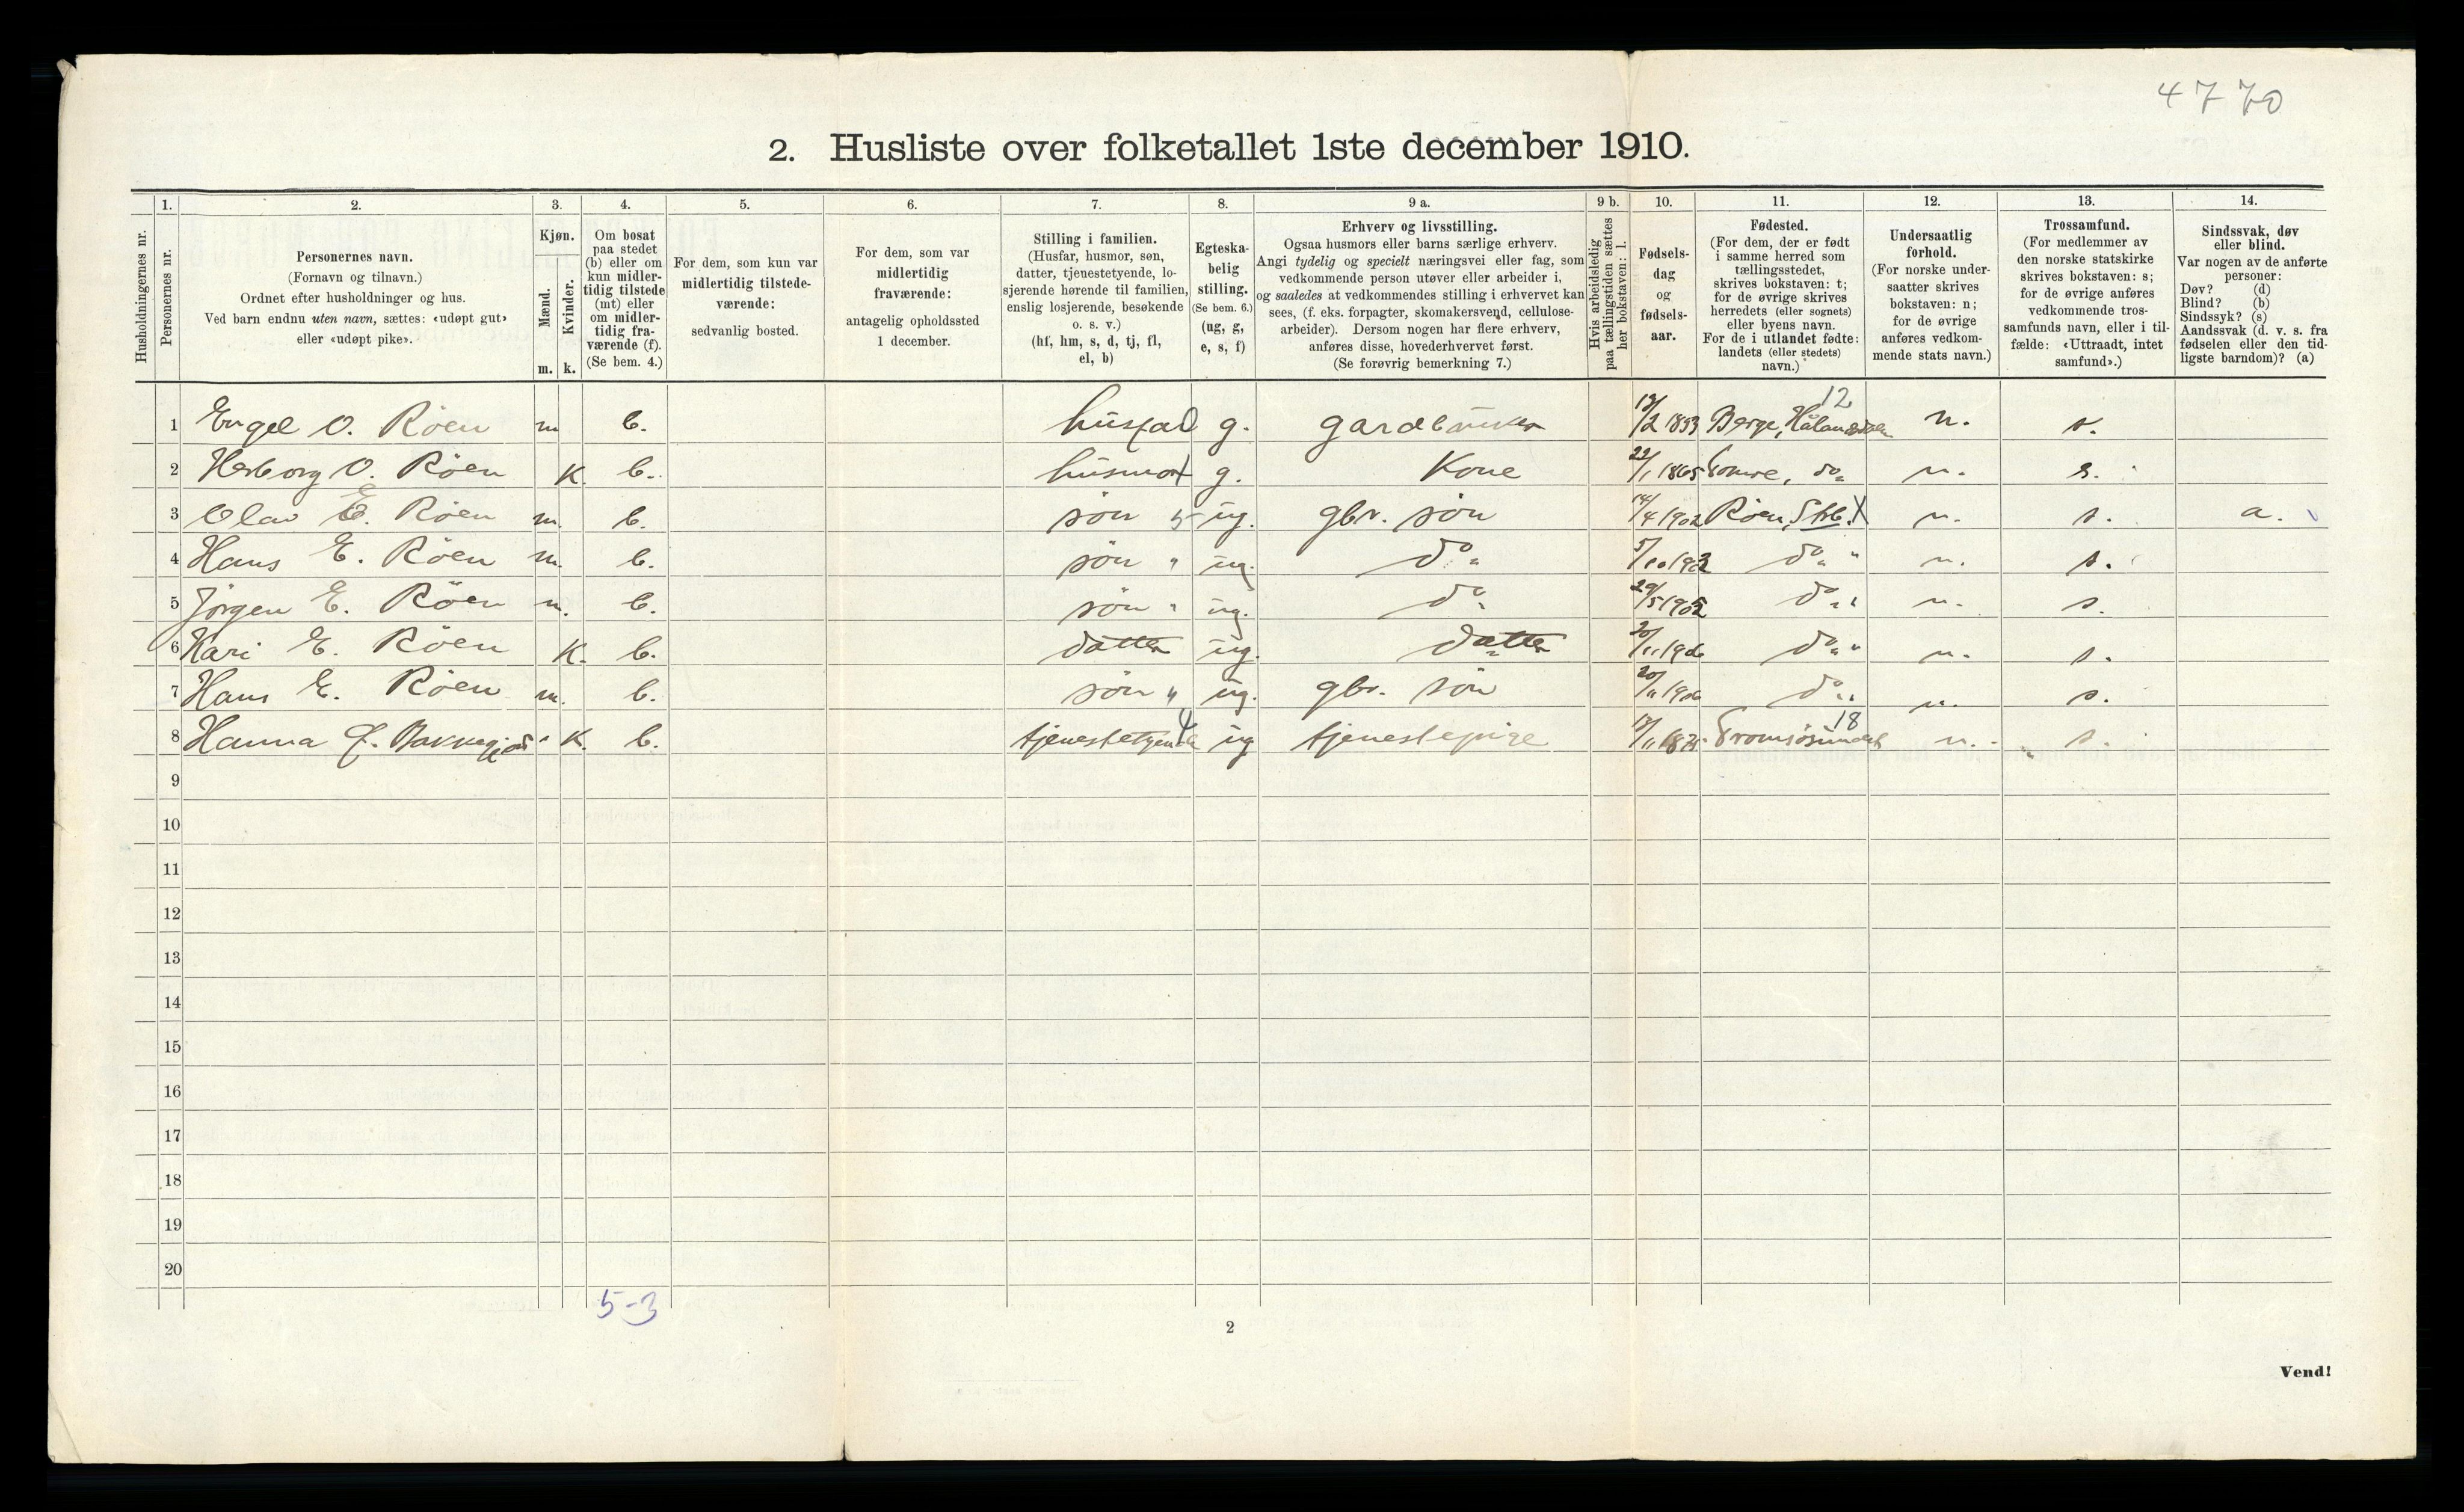 4770
2. Husliste over folketallet 1ste december 1910.
1. 2. 3. 4. 5. 6. 7. 8. 9 a. 9 b. 10. 11. 12. 13. 14.
Husholdningernes nr.
Personernes nr.
Personernes navn.
(Fornavn og tilnavn.)
Ordnet efter husholdninger og hus.
Ved barn endnu uten navn, sættes: «udøpt gut»
eller «udøpt pike».
Kjøn.
Mænd.
Kvinder.
m. k.
Om bosat
paa stedet
(b) eller om
kun midler-
tidig tilstede
(mt) eller
om midler-
tidig fra-
værende (f).
(Se bem. 4.)
For dem, som kun var
midlertidig tilstede-
værende:
sedvanlig bosted.
For dem, som var
midlertidig
fraværende:
antagelig opholdssted
1 december.
Stilling i familien.
(Husfar, husmor, søn,
datter, tjenestetyende, lo-
sjerende hørende til familien,
enslig losjerende, besøkende
o. s. v.)
(hf, hm, s, d, tj, fl,
el, b)
Egteska-
belig
stilling.
(Se bem. 6.)
(ug, g,
e, s, f)
Erhverv og livsstilling.
Ogsaa husmors eller barns særlige erhverv.
Angi tydelig og specielt næringsvei eller fag, som
vedkommende person utøver eller arbeider i,
og saaledes at vedkommendes stilling i erhvervet kan
sees, (f. eks. forpagter, skomakersvend, cellulose-
arbeider). Dersom nogen har flere erhverv,
anføres disse, hovederhvervet først.
(Se forøvrig bemerkning 7.)
Hvis arbeidsledig
paa tællingstiden sættes
her bokstaven: l.
Fødsels-
dag
og
fødsels-
aar.
Fødested.
(For dem, der er født
i samme herred som
tællingsstedet,
skrives bokstaven: t;
for de øvrige skrives
herredets (eller sognets)
eller byens navn.
For de i utlandet fødte:
landets (eller stedets)
navn.)
Undersaatlig
forhold.
(For norske under-
saatter skrives
bokstaven: n;
for de øvrige
anføres vedkom-
mende stats navn.)
Trossamfund.
(For medlemmer av
den norske statskirke
skrives bokstaven: s;
for de øvrige anføres
vedkommende tros-
samfunds navn, eller i til-
fælde: «Uttraadt, intet
samfund».)
Sindssvak, døv
eller blind.
Var nogen av de anførte
personer:
Døv? (d)
Blind? (b)
Sindssyk? (s)
Aandssvak (d. v. s. fra
fødselen eller den tid-
ligste barndom)? (a)
1 Engel O. Röen m b. husfa g. gardbruker /2 1833 Berge, 12 n. s.
2 Herborg O. Röen K. b. husmo g. Kone 22/1 1865 do n. s.
3 Olav E. Röen m. b. sön 5 ug. gbr. sön 14/4 1902 Röen, Strb. X n. s. a.
4 Hans E. Röen m. b. sön " ug. do 5/10 1903 do " n. s.
5 Jörgen E. Röen m. b. sön " ug. do 29/5 1905 do " n. s.
6 Kari E. Röen K. b. datter ug. datter 20/11 1906 do " n. s.
7 Hans E. Röen m. b. sön " ug. gbr. sön 20/11 1906 do " n. s.
8 Hanna K. b. tjenestetyende ug tjenestepige /11 Tromsösundet 18 n. s.
9
10
11
12
13
14
15
16
17
18
19
20
5-3
2
Vend!